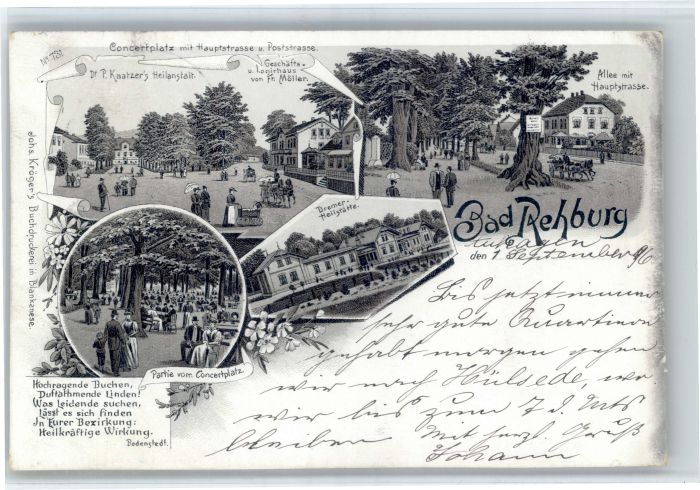 No. 781.
Concertplatz mit Hauptstrasse u. Poststrasse.
Dr. P. Kaatzer's Heilanstalt.
Geschäfts-
u. Logirhaus
von Fr. Möller.
Allee mit
Hauptstrasse.
Johs. Kröger's Buchdruckerei in Blankenese.
Bremer-
Heilstätte.
Bad Rehburg
den 1 September 96
Bis jetzt immer
sehr gute Quartiere
gehabt morgen gehen
wir nach Hülsede, wo
wir bis zum 7 d. Mts
bleiben Mit herzl. Gruß
Johann
Partie vom Concertplatz.
Hochragende Buchen,
Duftathmende Linden!
Was Leidende suchen,
Lässt es sich finden
In Eurer Bezirkung:
Heilkräftige Wirkung.
Bodenstedt.